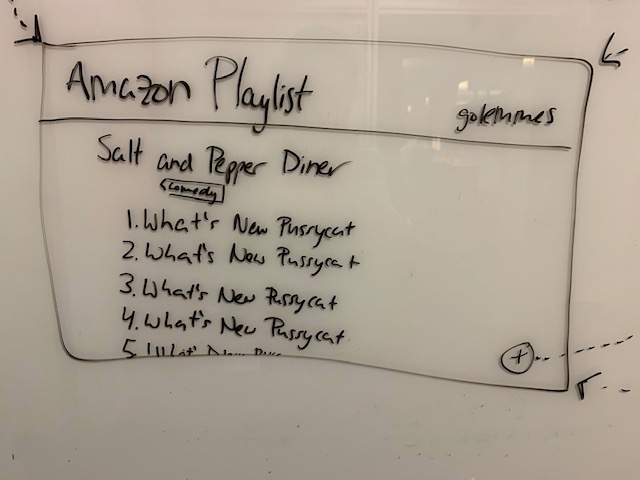 Amazon Playlist
golemmes
Salt and Pepper Diner
Comedy
1. What's New Pussycat
2. What's New Pussycat
3. What's New Pussycat
4. What's New Pussycat
5. What's New
+